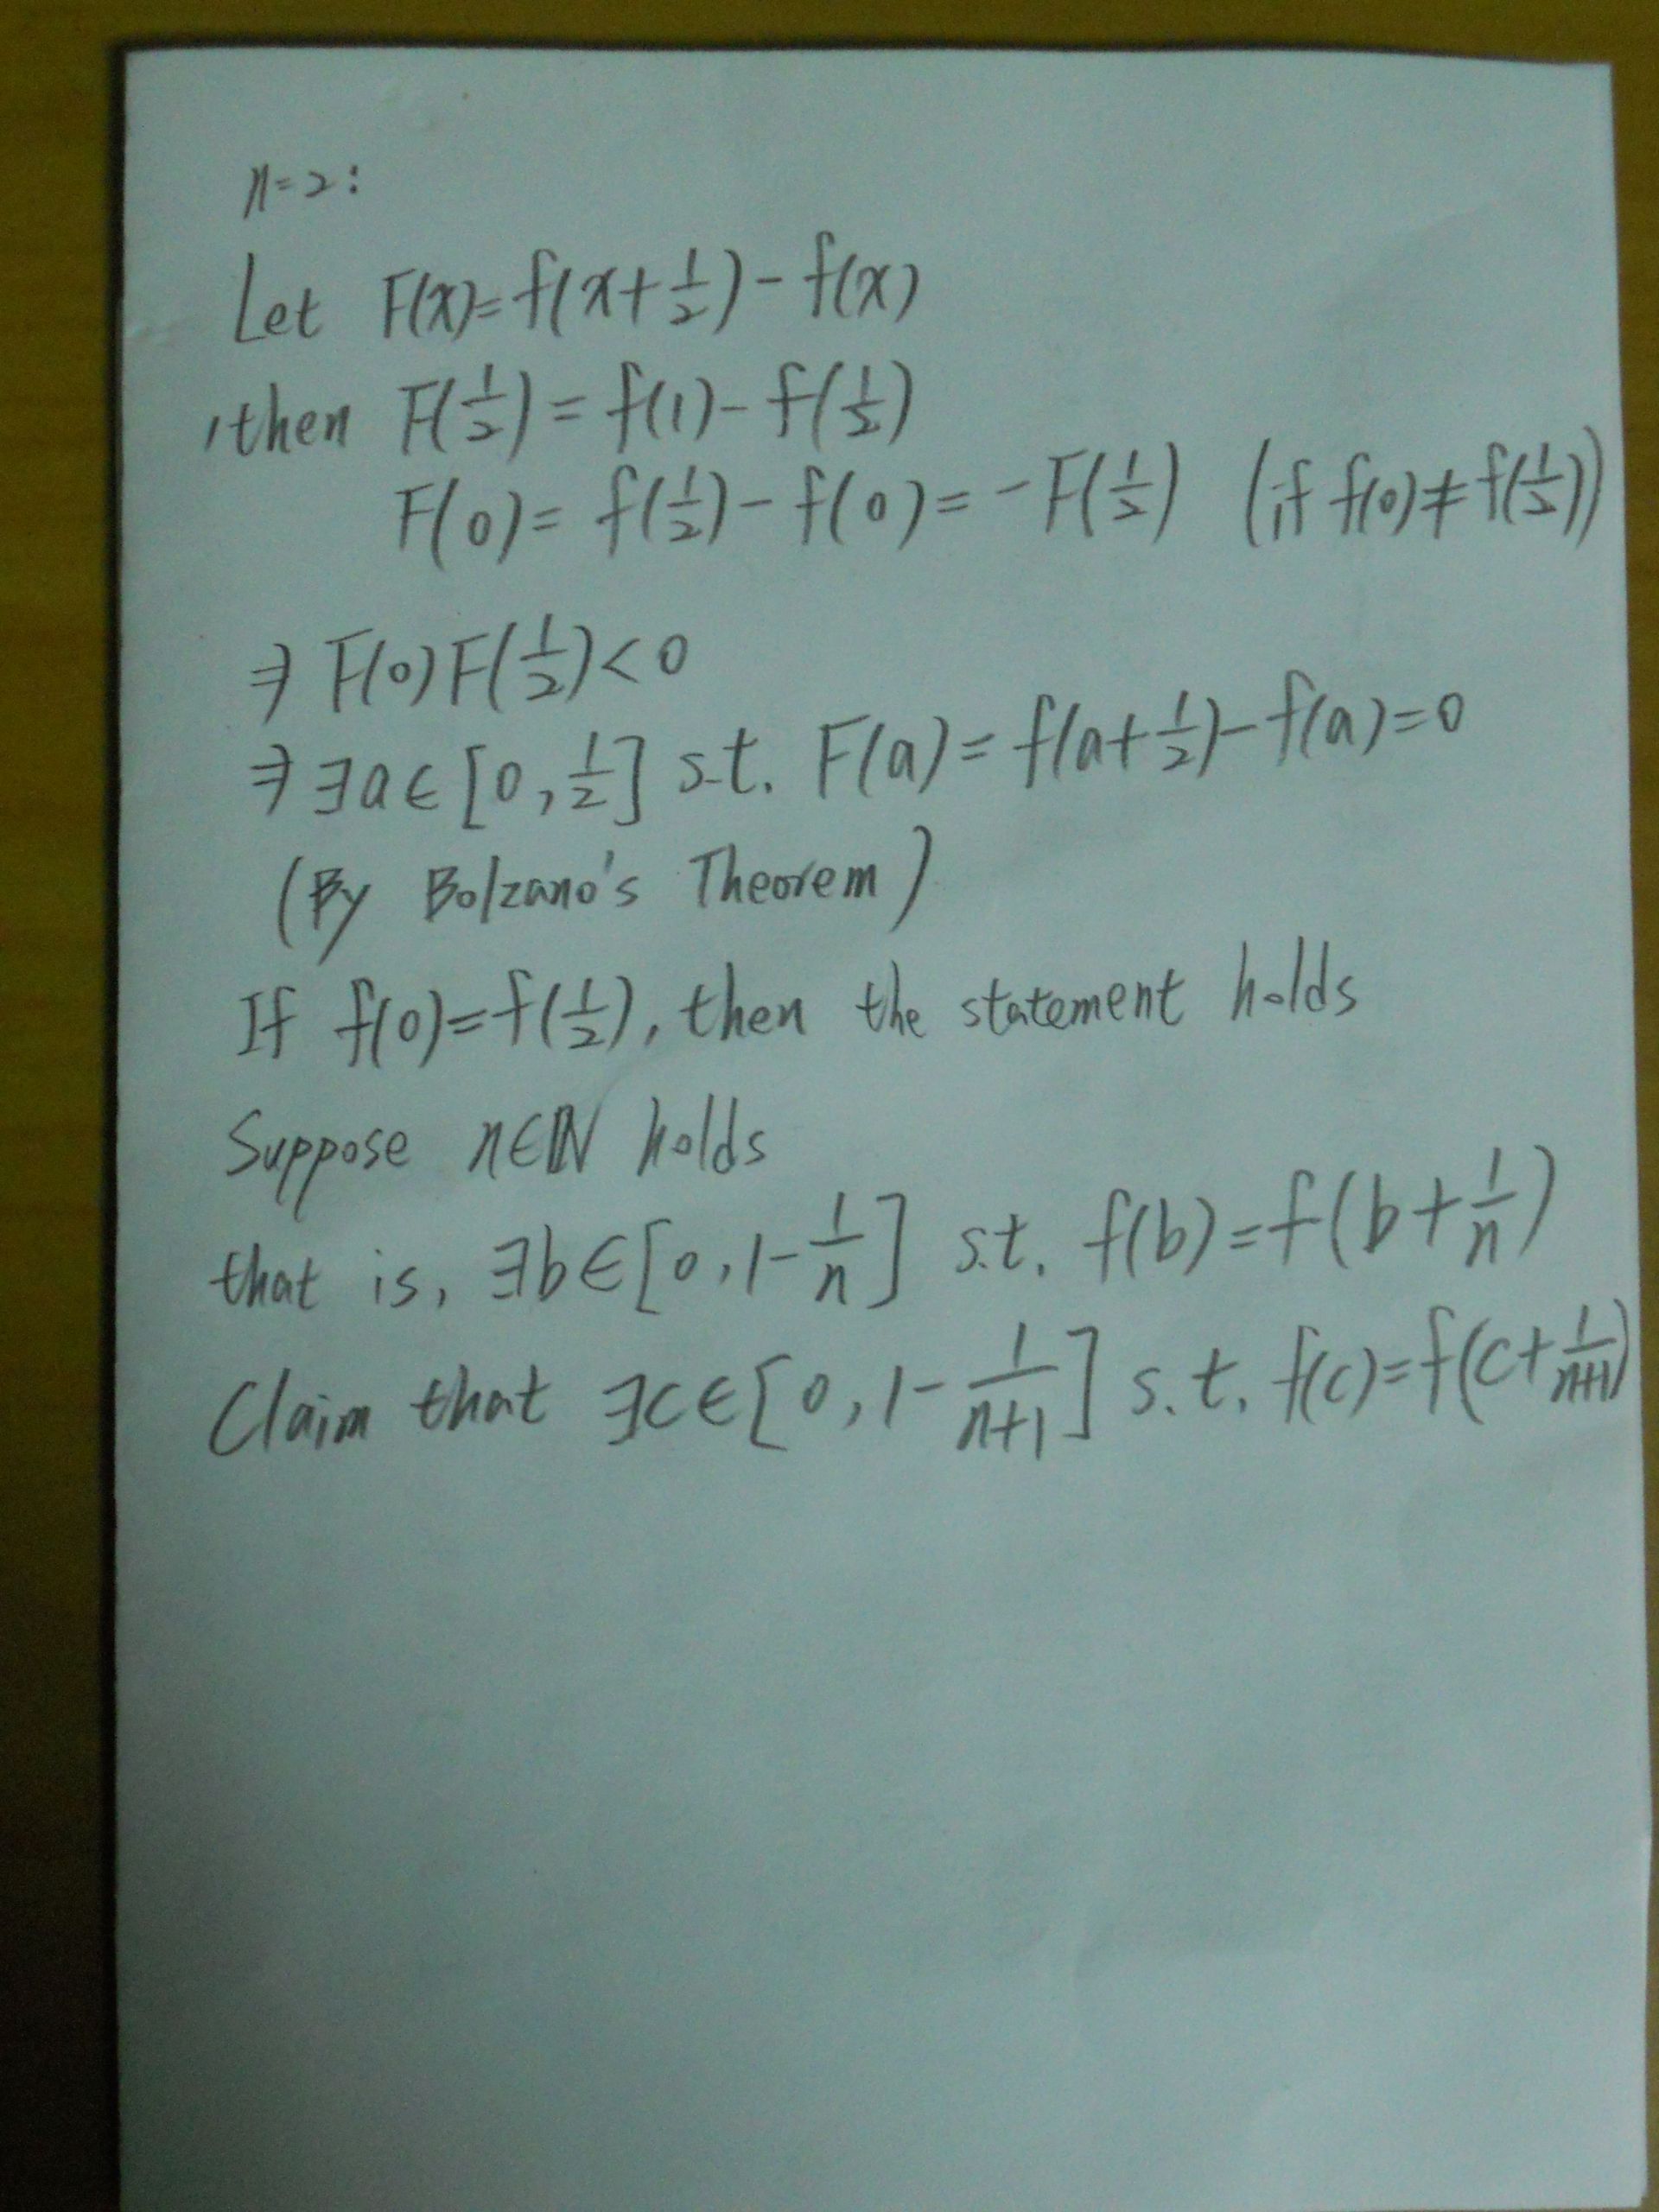 n=2:
Let F(x)=f(x+1/2)-f(x)
, then F(1/2)=f(1)-f(1/2)
F(0)=f(1/2)-f(0)=-F(1/2) (if f(0)≠f(1/2))
⇒ F(0)F(1/2)<0
⇒ ∃a∈[0,1/2] s.t. F(a)=f(a+1/2)-f(a)=0
(By Bolzano's Theorem)
If f(0)=f(1/2), then the statement holds
Suppose n∈ℕ holds
that is, ∃b∈[0,1-1/n] s.t. f(b)=f(b+1/n)
Claim that ∃c∈[0,1-1/(n+1)] s.t. f(c)=f(c+1/(n+1))